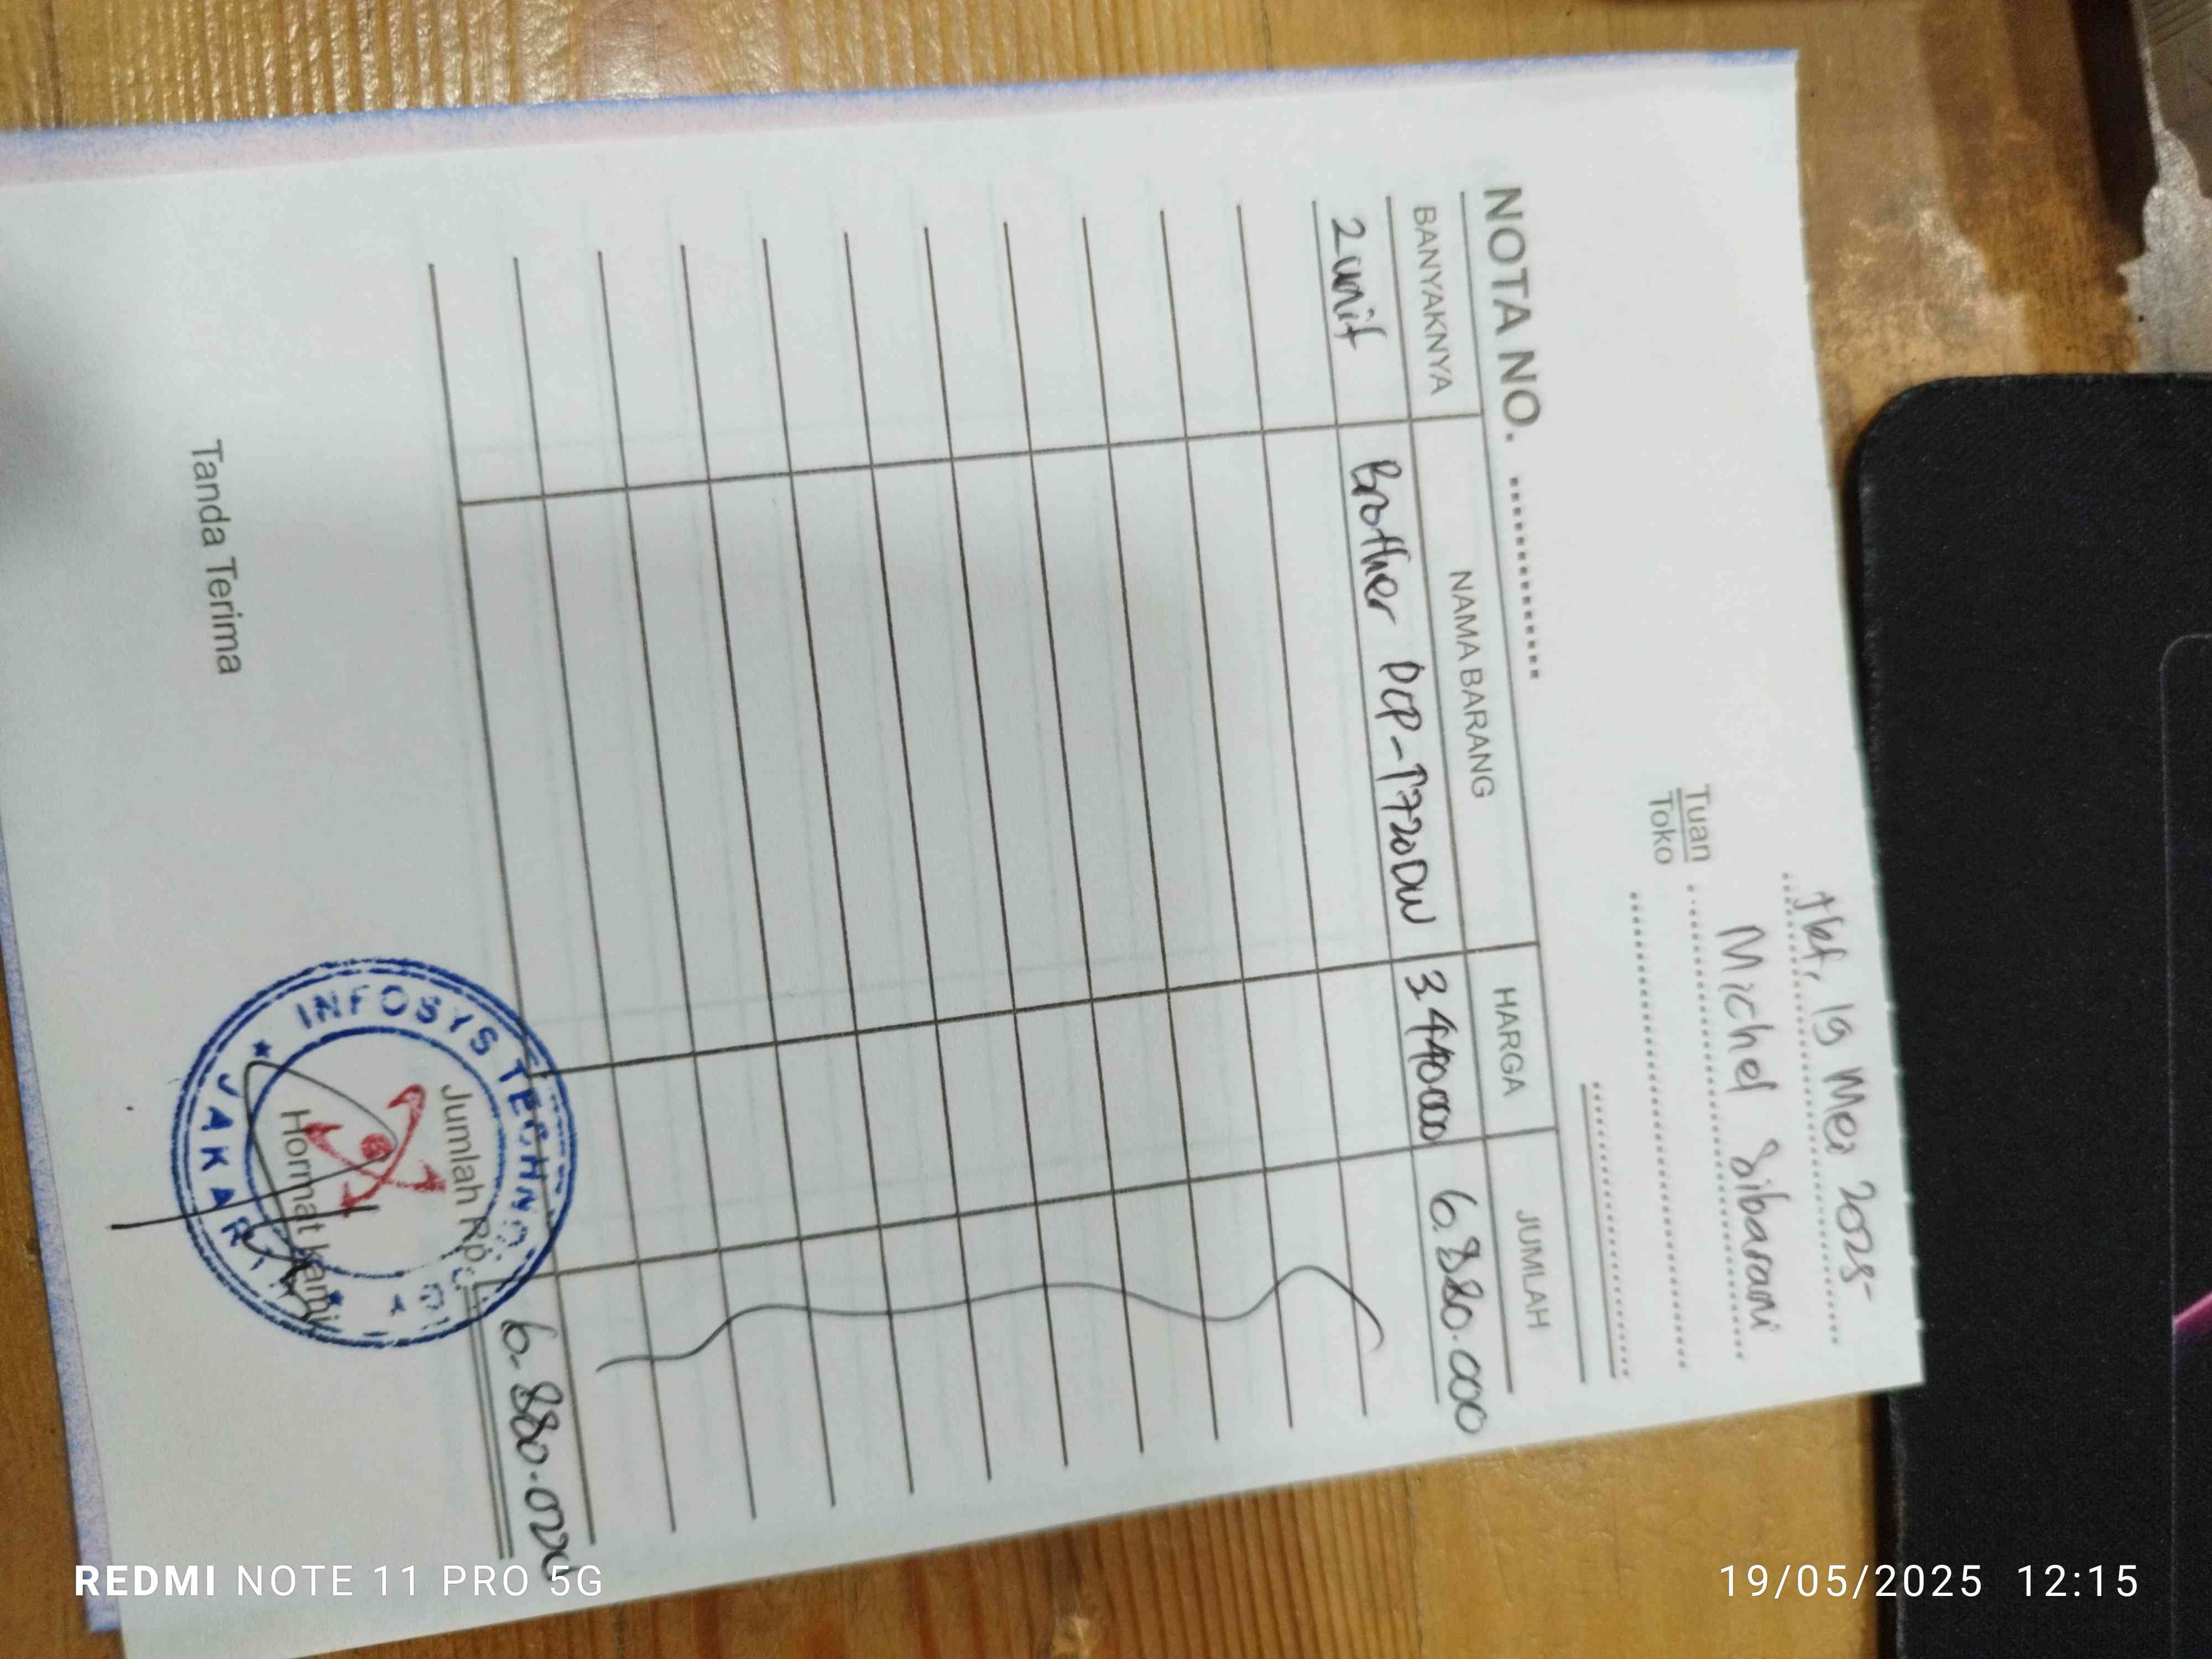 Jkt, 19 Mei 2025
Tuan Michel Sibarani
Toko
NOTA NO.
BANYAKNYA NAMA BARANG HARGA JUMLAH
2 unit Brother DCP-T720DW 3.440.000 6.880.000
Jumlah Rp. 6.880.000
Tanda Terima Hormat Kami
INFOSYS TECHNO
JAKARTA
REDMI NOTE 11 PRO 5G
19/05/2025 12:15